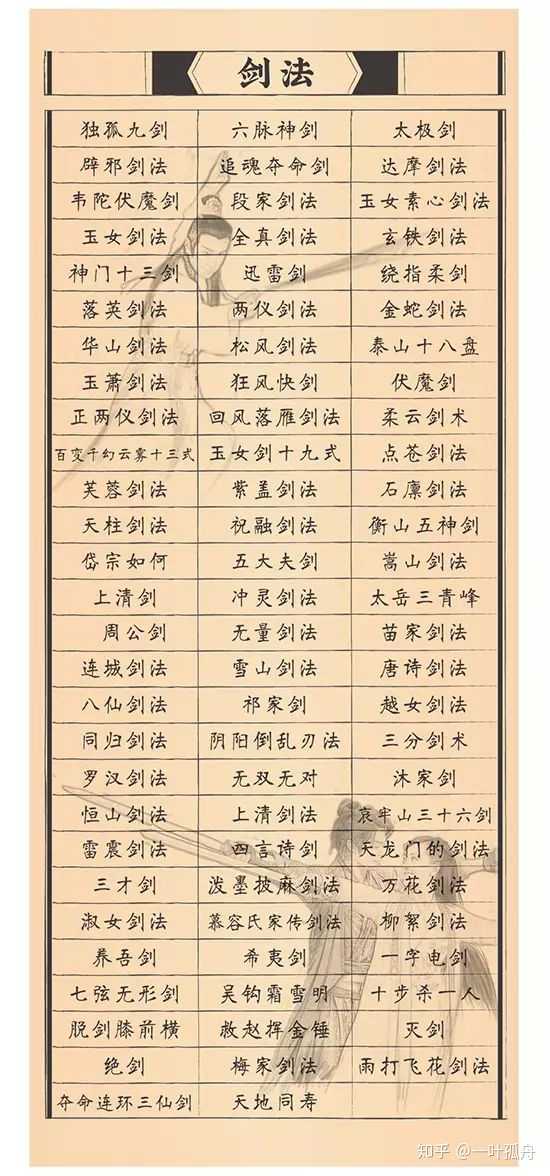 剑法
独孤九剑 六脉神剑 太极剑
辟邪剑法 追魂夺命剑 达摩剑法
韦陀伏魔剑 段家剑法 玉女素心剑法
玉女剑法 全真剑法 玄铁剑法
神门十三剑 迅雷剑 绕指柔剑
落英剑法 两仪剑法 金蛇剑法
华山剑法 松风剑法 泰山十八盘
玉萧剑法 狂风快剑 伏魔剑
正两仪剑法 回风落雁剑法 柔云剑术
百变千幻云雾十三式 玉女剑十九式 点苍剑法
芙蓉剑法 紫盖剑法 石廪剑法
天柱剑法 祝融剑法 衡山五神剑
岱宗如何 五大夫剑 嵩山剑法
上清剑 冲灵剑法 太岳三青峰
周公剑 无量剑法 苗家剑法
连城剑法 雪山剑法 唐诗剑法
八仙剑法 祁家剑 越女剑法
同归剑法 阴阳倒乱刃法 三分剑术
罗汉剑法 无双无对 沐家剑
恒山剑法 上清剑法 哀牢山三十六剑
雷震剑法 四言诗剑 天龙门的剑法
三才剑 泼墨披麻剑法 万花剑法
淑女剑法 慕容氏家传剑法 柳絮剑法
养吾剑 希夷剑 一字电剑
七弦无形剑 吴钩霜雪明 十步杀一人
脱剑膝前横 救赵挥金锤 灭剑
绝剑 梅家剑法 雨打飞花剑法
夺命连环三仙剑 天地同寿
知乎 @一叶孤舟